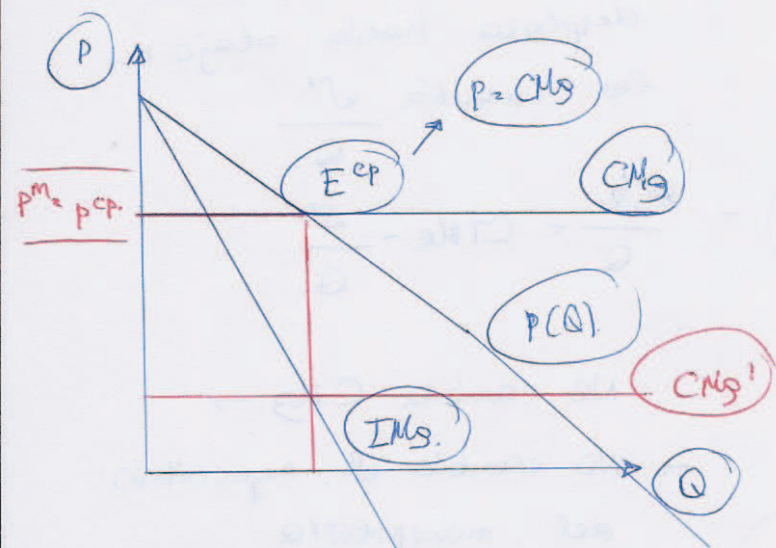 P
P = CMg
E^cp
CMg
p^M = p^cp.
P(Q).
CMg'
IMg.
Q